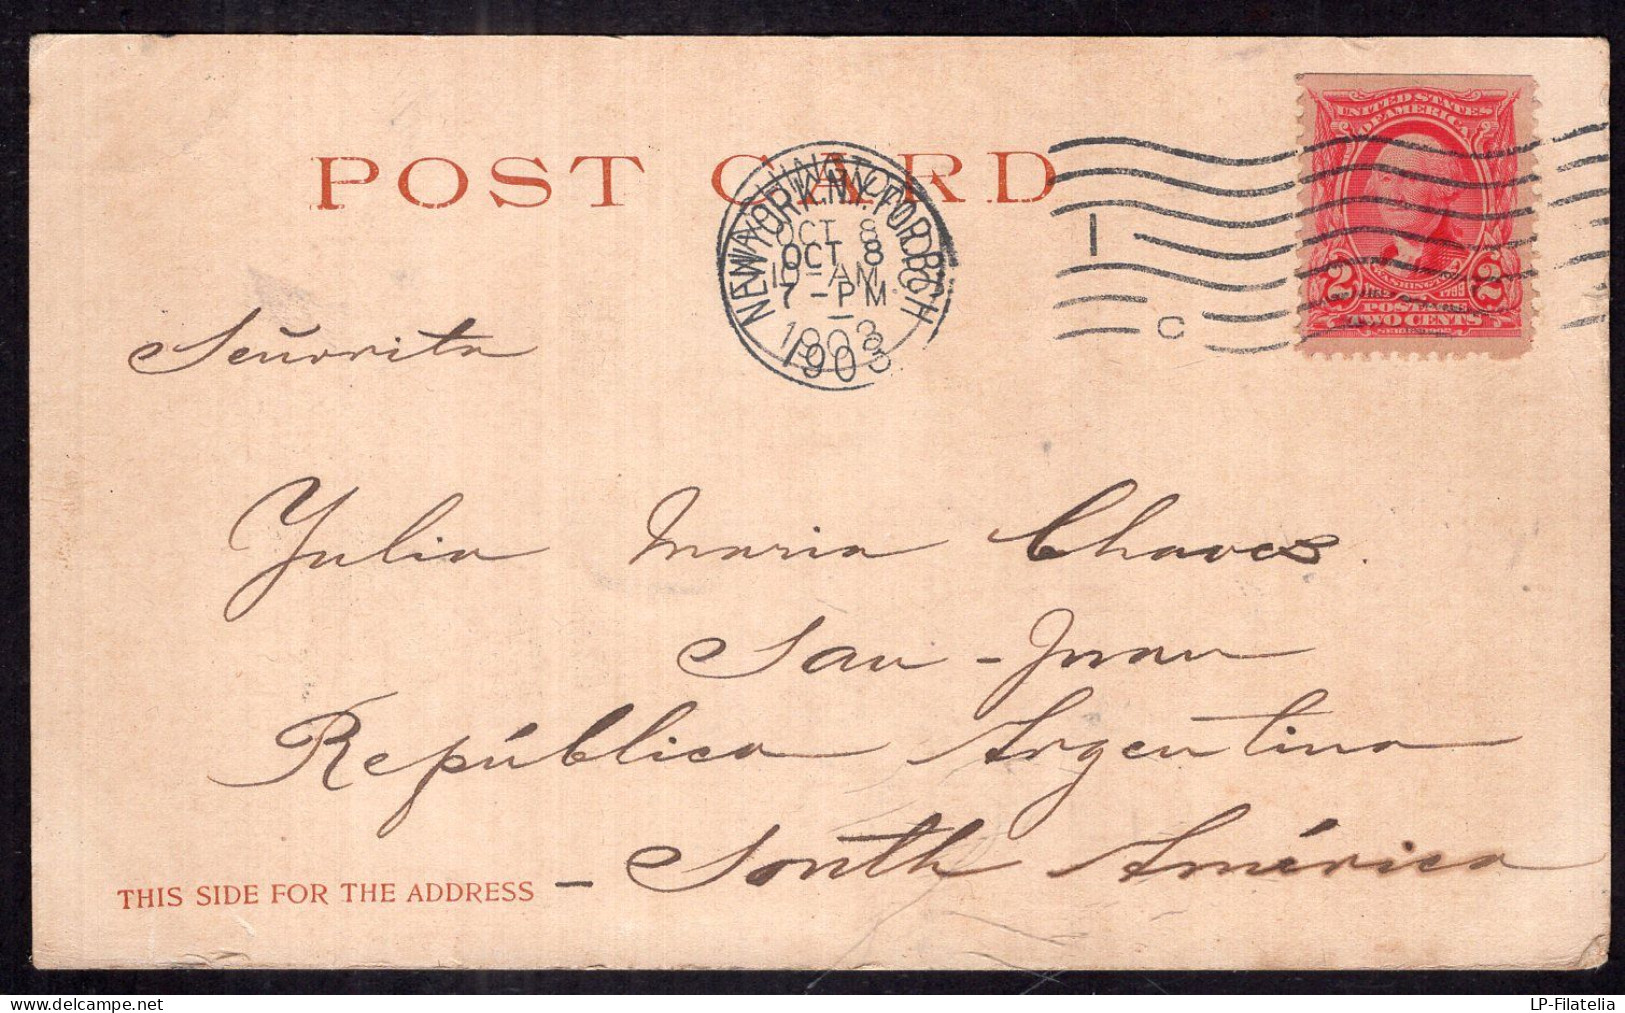 POST CARD
UNITED STATES
OF AMERICA
NEW YORK, N.Y. FOR'GN BCH
WASHINGTON, D.C.
OCT 8
10-AM
1903
OCT 8
7-PM
1903
1
C
WASHINGTON
1799
2 POSTAGE 2
TWO CENTS
Señorita
Yulia Maria Chaves.
San-Juan
República Argentina
THIS SIDE FOR THE ADDRESS - South América
LP-Filatelia